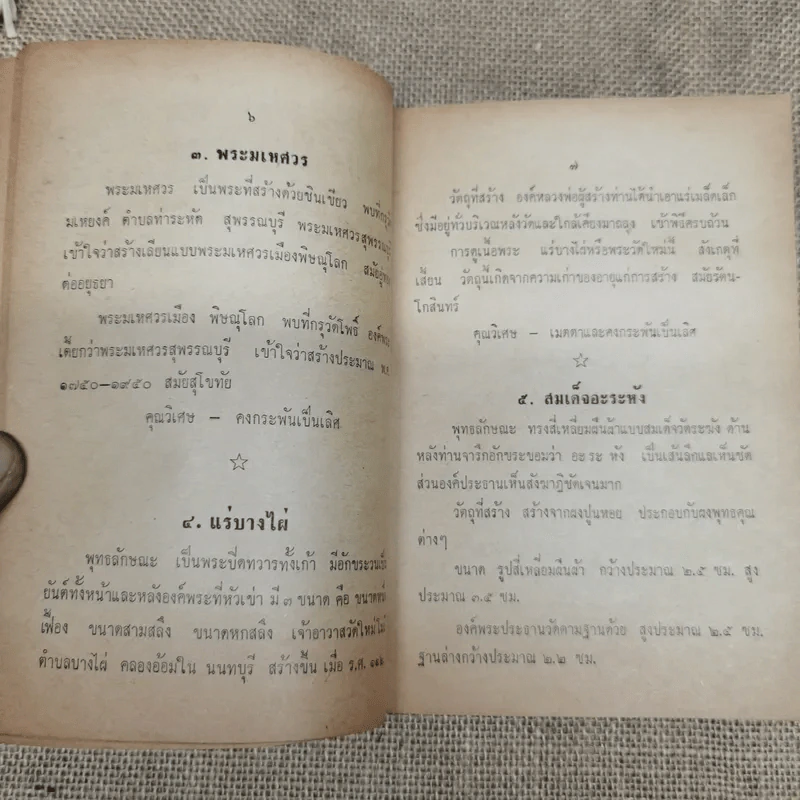 ๖
๓. พระมเหศวร
พระมเหศวร เป็นพระที่สร้างด้วยชินเขียว พบที่กรุวัด
มเหยงค์ ตำบลท่าระหัด สุพรรณบุรี พระมเหศวรสุพรรณบุรี
เข้าใจว่าสร้างเลียนแบบพระมเหศวรเมืองพิษณุโลก
ต่ออยุธยา
พระมเหศวรเมือง พิษณุโลก พบที่กรุวัดโพธิ์
เตี้ยกว่าพระมเหศวรสุพรรณบุรี เข้าใจว่าสร้างประมาณ พ.ศ.
๑๗๕๐—๑๙๕๐ สมัยสุโขทัย
คุณวิเศษ — คงกระพันเป็นเลิศ
๔. แร่บางไผ่
พุทธลักษณะ เป็นพระปิดทวารทั้งเก้า มีอักขระ
ยันต์ทั้งหน้าและหลังองค์พระที่หัวเข่า มี ๓ ขนาด คือ
เฟื้อง ขนาดสามสลึง ขนาดหกสลึง เจ้าอาวาสวัดใหม่
ตำบลบางไผ่ คลองอ้อมใน นนทบุรี สร้างขึ้น เมื่อ ร.ศ.
๗
วัตถุที่สร้าง องค์หลวงพ่อผู้สร้างท่านได้นำเอาแร่เม็ดเล็ก
ซึ่งมีอยู่ทั่วบริเวณหลังวัดและใกล้เคียงมาถลุง เข้าพิธีครบถ้วน
การดูเนื้อพระ แร่บางไผ่หรือพระวัดใหม่นี้ สังเกตุที่
เสี้ยน วัตถุนี้เกิดจากความเก่าของอายุแก่การสร้าง สมัยรัตน-
โกสินทร์
คุณวิเศษ — เมตตาและคงกระพันเป็นเลิศ
๕. สมเด็จอะระหัง
พุทธลักษณะ ทรงสี่เหลี่ยมผืนผ้าแบบสมเด็จวัดระฆัง ด้าน
หลังท่านจารึกอักขระขอมว่า อะ ระ หัง เป็นเส้นลึกแลเห็นชัด
ส่วนองค์ประธานเห็นสังฆาฏิชัดเจนมาก
วัตถุที่สร้าง สร้างจากผงปูนหอย ประกอบกับผงพุทธคุณ
ต่างๆ
ขนาด รูปสี่เหลี่ยมผืนผ้า กว้างประมาณ ๒.๕ ซม. สูง
ประมาณ ๓.๕ ซม.
องค์พระประธานวัดตามฐานด้วย สูงประมาณ ๒.๕ ซม.
ฐานล่างกว้างประมาณ ๒.๒ ซม.